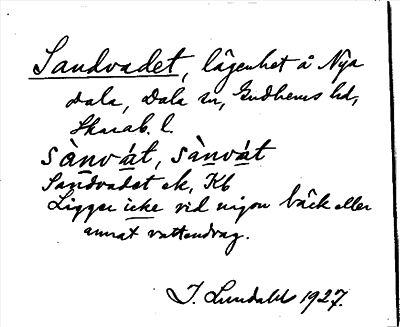 Sandvadet, lägenhet å Nya
Dala, Dala sn, Gudhems hd,
Skarab. l.
sànvát, sànvát
Sandvadet ek, Kb
Ligger icke vid någon bäck eller
annat vattendrag.
I. Lundahl 1927.